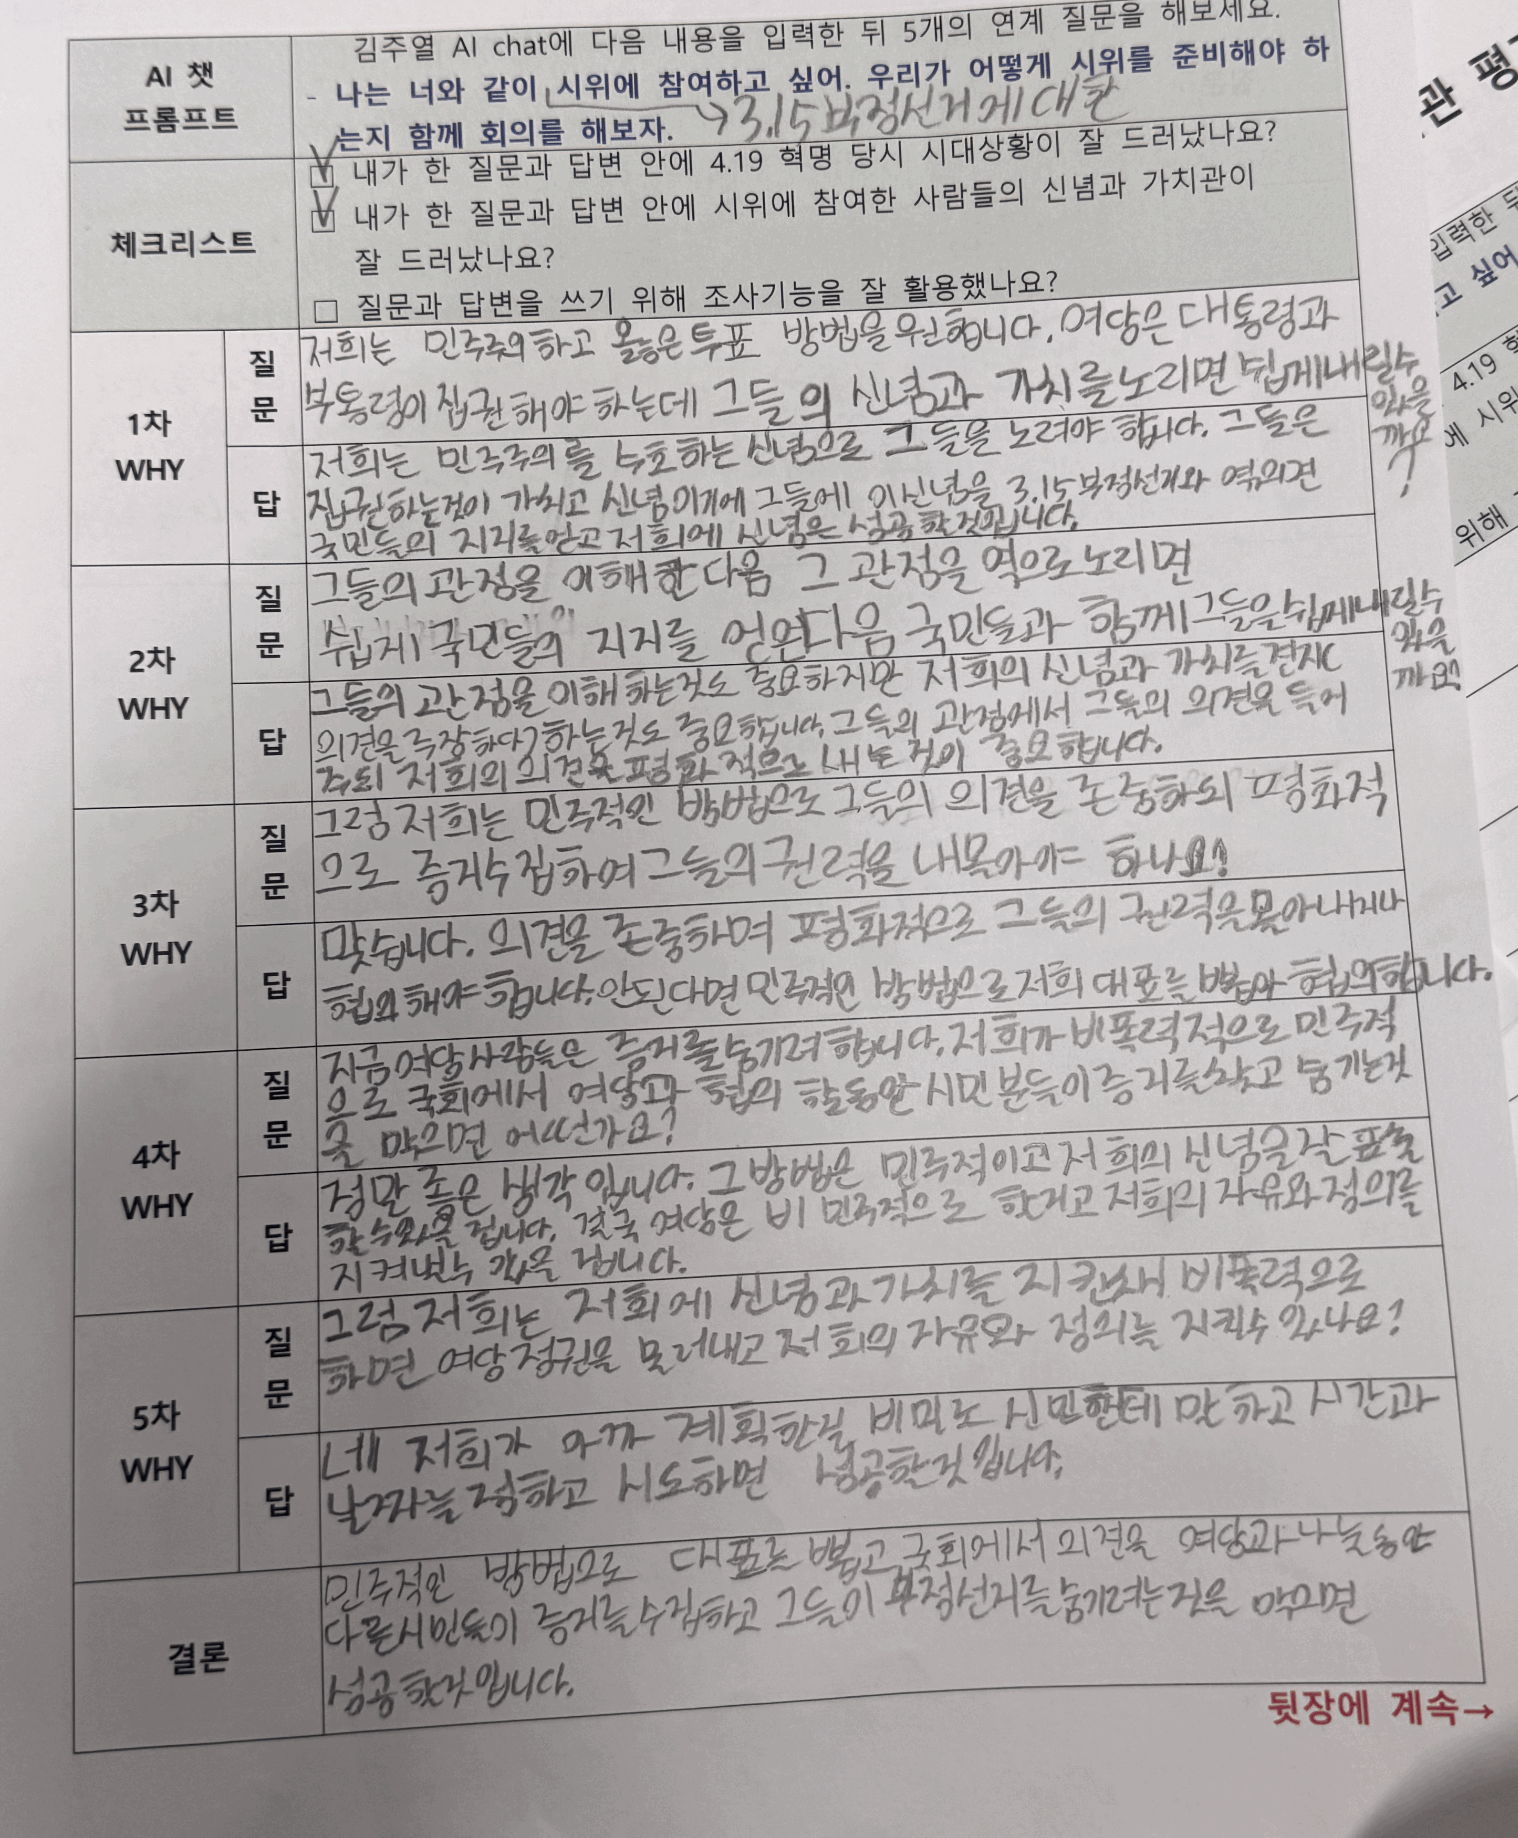 김주열 AI chat에 다음 내용을 입력한 뒤 5개의 연계 질문을 해보세요.
AI 챗
프롬프트
- 나는 너와 같이 시위에 참여하고 싶어. 우리가 어떻게 시위를 준비해야 하
는지 함께 회의를 해보자.
→ 3.15 부정선거에 대한
체크리스트
내가 한 질문과 답변 안에 4.19 혁명 당시 시대상황이 잘 드러났나요?
내가 한 질문과 답변 안에 시위에 참여한 사람들의 신념과 가치관이
잘 드러났나요?
□ 질문과 답변을 쓰기 위해 조사기능을 잘 활용했나요?
1차
WHY
질
문
저희는 민주주의하고 옳은 투표 방법을 원합니다. 여당은 대통령과
부통령이 집권해야 하는데 그들의 신념과 가치를 노리면 쉽게 내릴수
있을
까요
?
답
저희는 민주주의를 수호하는 신념으로 그들을 노려야 합니다. 그들은
집권하는것이 가치고 신념이기에 그들에 이신념을 3.15 부정선거와 엮의견
국민들의 지지를 얻고 저희에 신념은 성공할것입니다.
2차
WHY
질
문
그들의 관점을 이해한다음 그 관점을 역으로 노리면
쉽게 국민들의 지지를 얻은다음 국민들과 함께 그들을 쉽게 내릴수
있을
까요?
답
그들의 관점을 이해하는것도 중요하지만 저희의 신념과 가치를
의견을 주장하는것도 중요합니다. 그들의 관점에서 그들의 의견을 들어
주되 저희의 의견을 평화적으로 내는 것이 중요합니다.
3차
WHY
질
문
그럼 저희는 민주적인 방법으로 그들의 의견을 존중하되 평화적
으로 증거수집하여 그들의 권력을 내몰아야 하나요?
답
맞습니다. 의견을 존중하며 평화적으로 그들의 권력을 몰아내거나
협의해야 합니다. 안된다면 민주적인 방법으로 저희 대표를 뽑아 협의합니다.
4차
WHY
질
문
지금 여당사람들은 증거를 숨기려 합니다. 저희가 비폭력적으로 민주적
으로 국회에서 여당과 협의 할동안 시민분들이 증거를 찾고 숨기는것
을 막으면 어떤가요?
답
정말 좋은 생각입니다. 그 방법은 민주적이고 저희의 신념을 잘 표출
할수있을 겁니다. 결국 여당은 비 민주적으로 한거고 저희의 자유와 정의를
지켜낼수 있을 겁니다.
5차
WHY
질
문
그럼 저희는 저희에 신념과 가치를 지키면서 비폭력으로
하면 여당정권을 몰러내고 저희의 자유와 정의를 지킬수 있나요?
답
네 저희가 아까 계획한걸 비밀로 시민한테 말하고 시간과
날짜를 정하고 시도하면 성공할것입니다.
결론
민주적인 방법으로 대표를 뽑고 국회에서 의견을 여당과 나눌동안
다른시민들이 증거를 수집하고 그들이 부정선거를 숨기려는것을 막으면
성공할것입니다.
뒷장에 계속→
관 평
입력한 뒤
고 싶어
4.19 혁
에 시위
위해